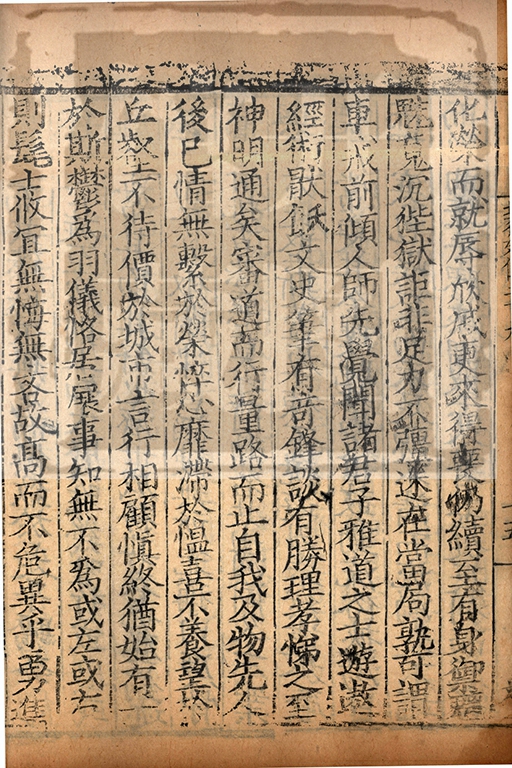 化榮而就辱欣戚更來得喪仍續至有身御
魅魂沉狴獄詎非足力不彊迷在當局孰可謂
車戒前傾人師先覺聞諸君子雅道之士遊遨
經術猒飫文史筆有奇鋒談有勝理孝悌之至
神明通矣審道而行量路而止自我及物先人
後已情無繫於榮悴心靡滯於慍喜不養望於
丘壑不待價於城市言行相顧慎終猶始有一
於斯鬱為羽儀恪居展事知無不為或左或右
則髦士攸宜無悔無吝故高而不危異乎勇進